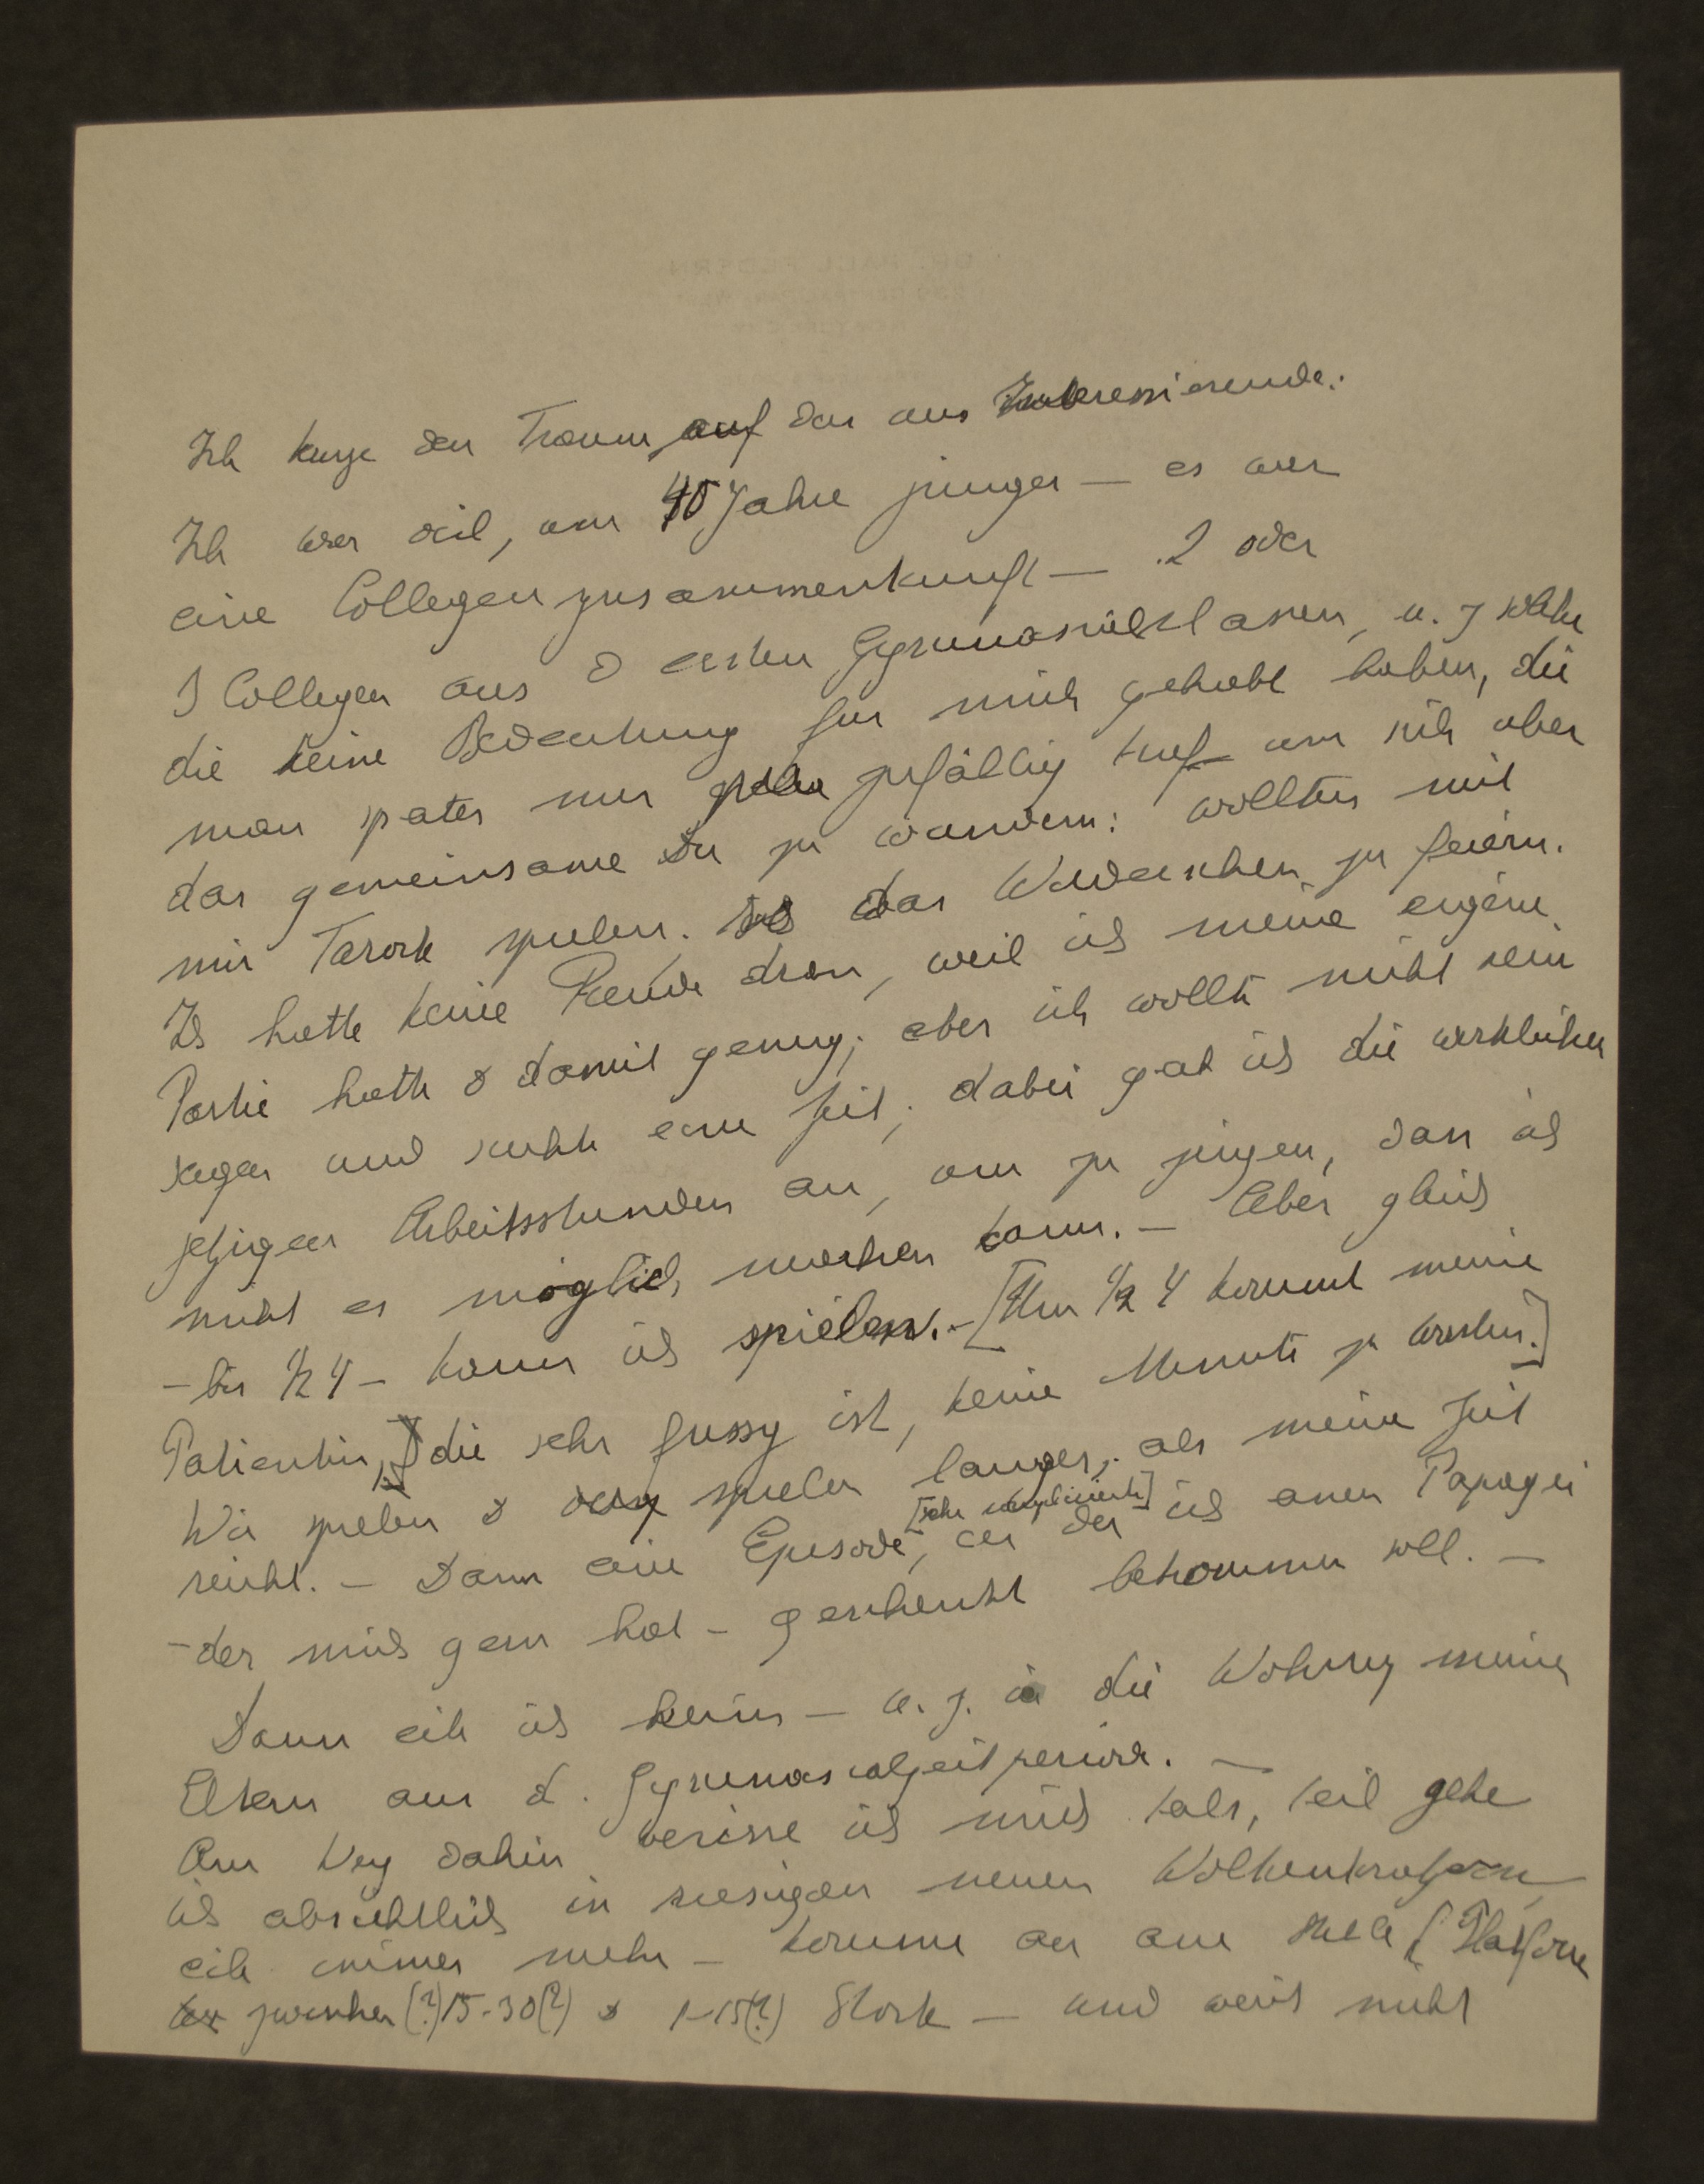 DR. PAUL FEDERN
Ich kurze den Traum auf das uns Interessierende:
Ich war viel, um 40 Jahre junger — es war
eine Collegenzusammenkunft — 2 oder
3 Collegen aus d ersten Gymnasialklassen, u. z solche
die keine Bedeutung fur mich gehabt haben, die
man spater nur zufällig traf um sich uber
das gemeinsame Du zu wundern: wollten mit
mir Tarock spielen. das Wiedersehen zu feiern.
Ich hatte keine Freude dran, weil ich meine eigene
Partie hatte & damit genug; aber ich wollte nicht nein
sagen und suchte eine Zeit; dabei gab ich die wirklichen
jetzigen Arbeitsstunden an, um zu zeigen, dass ich
nicht es möglich machen kann. — Aber gleich
— bis ½ 4 — kann ich spielen. — [Um ½ 4 kommt meine
Patientin, die sehr fussy ist, keine Minute zu warten.]
Wir spielen & spielen langer, als meine Zeit
reicht. — Dann eine Episode, [sehr complicierte] in der ich einen Papagei
— der mich gern hat — geschenkt bekommen soll. —
Dann eile ich heim — u. z. in die Wohnung meiner
Eltern aus d. Gymnasialzeitperiode. —
Am Weg dahin verirre ich mich teils, teil gehe
ich absichtlich in riesigen neuen Wolkenkratzern
eile immer mehr — komme an eine Stelle ( Platform
zwischen (?) 15-30(?) & 1-15(?) Stock — und weiss nicht